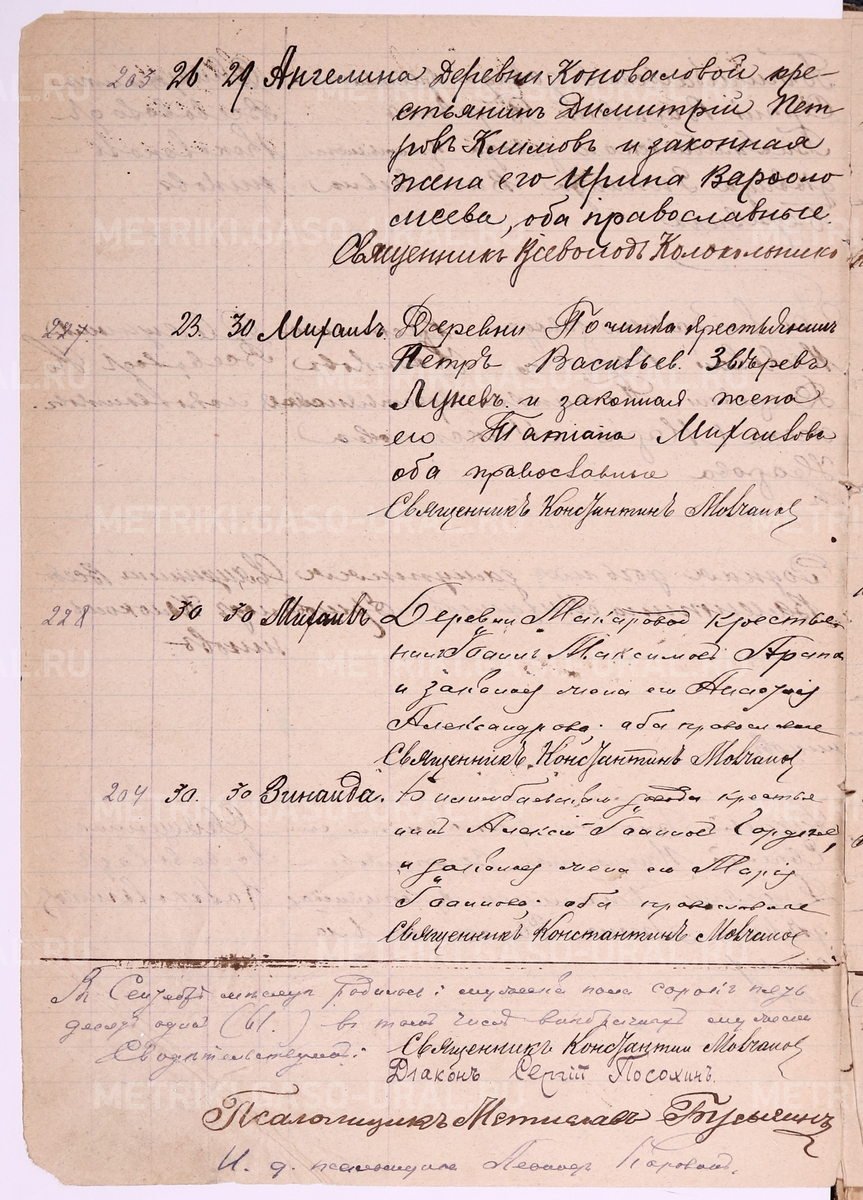 203 26 29 Ангелина Деревни Коноваловой кре-
стьянинъ Димитрій Пет
ровъ Климовъ и законная
жена его Ирина Варѳоло
меева, оба православные.
Священникъ Всеволодъ Колокольнико
227. 23. 30 Михаилъ. Деревни Починка крестьянинъ
Петръ Васильев. Звѣревъ
Луневъ и законная жена
его Татіана Михаилова
оба православные
Священникъ Константинъ Мовчанов
228 30 30 Михаилъ Деревни Макаровой крестья
нинъ Іоаннъ Максимовъ
и законная жена его
Александрова. оба православные
Священникъ Константинъ Мовчанов
204 30. 30 Зинаида. Билимбаевскаго завода крестья
нинъ Алексій Іоанновъ
и законная жена его Марія
Іоаннова. оба православные
Священникъ Константинъ Мовчанов
Въ Сентябрѣ мѣсяцѣ родилось: мужеска пола сорокъ
(61.) въ томъ числѣ
Свидѣтельствуютъ: Священникъ Константин Мовчанов
Діаконъ Сергій Посохинъ.
Псаломщикъ Мстиславъ
И. д. псаломщика Леонидъ
METRIKI.GASO-URAL.RU